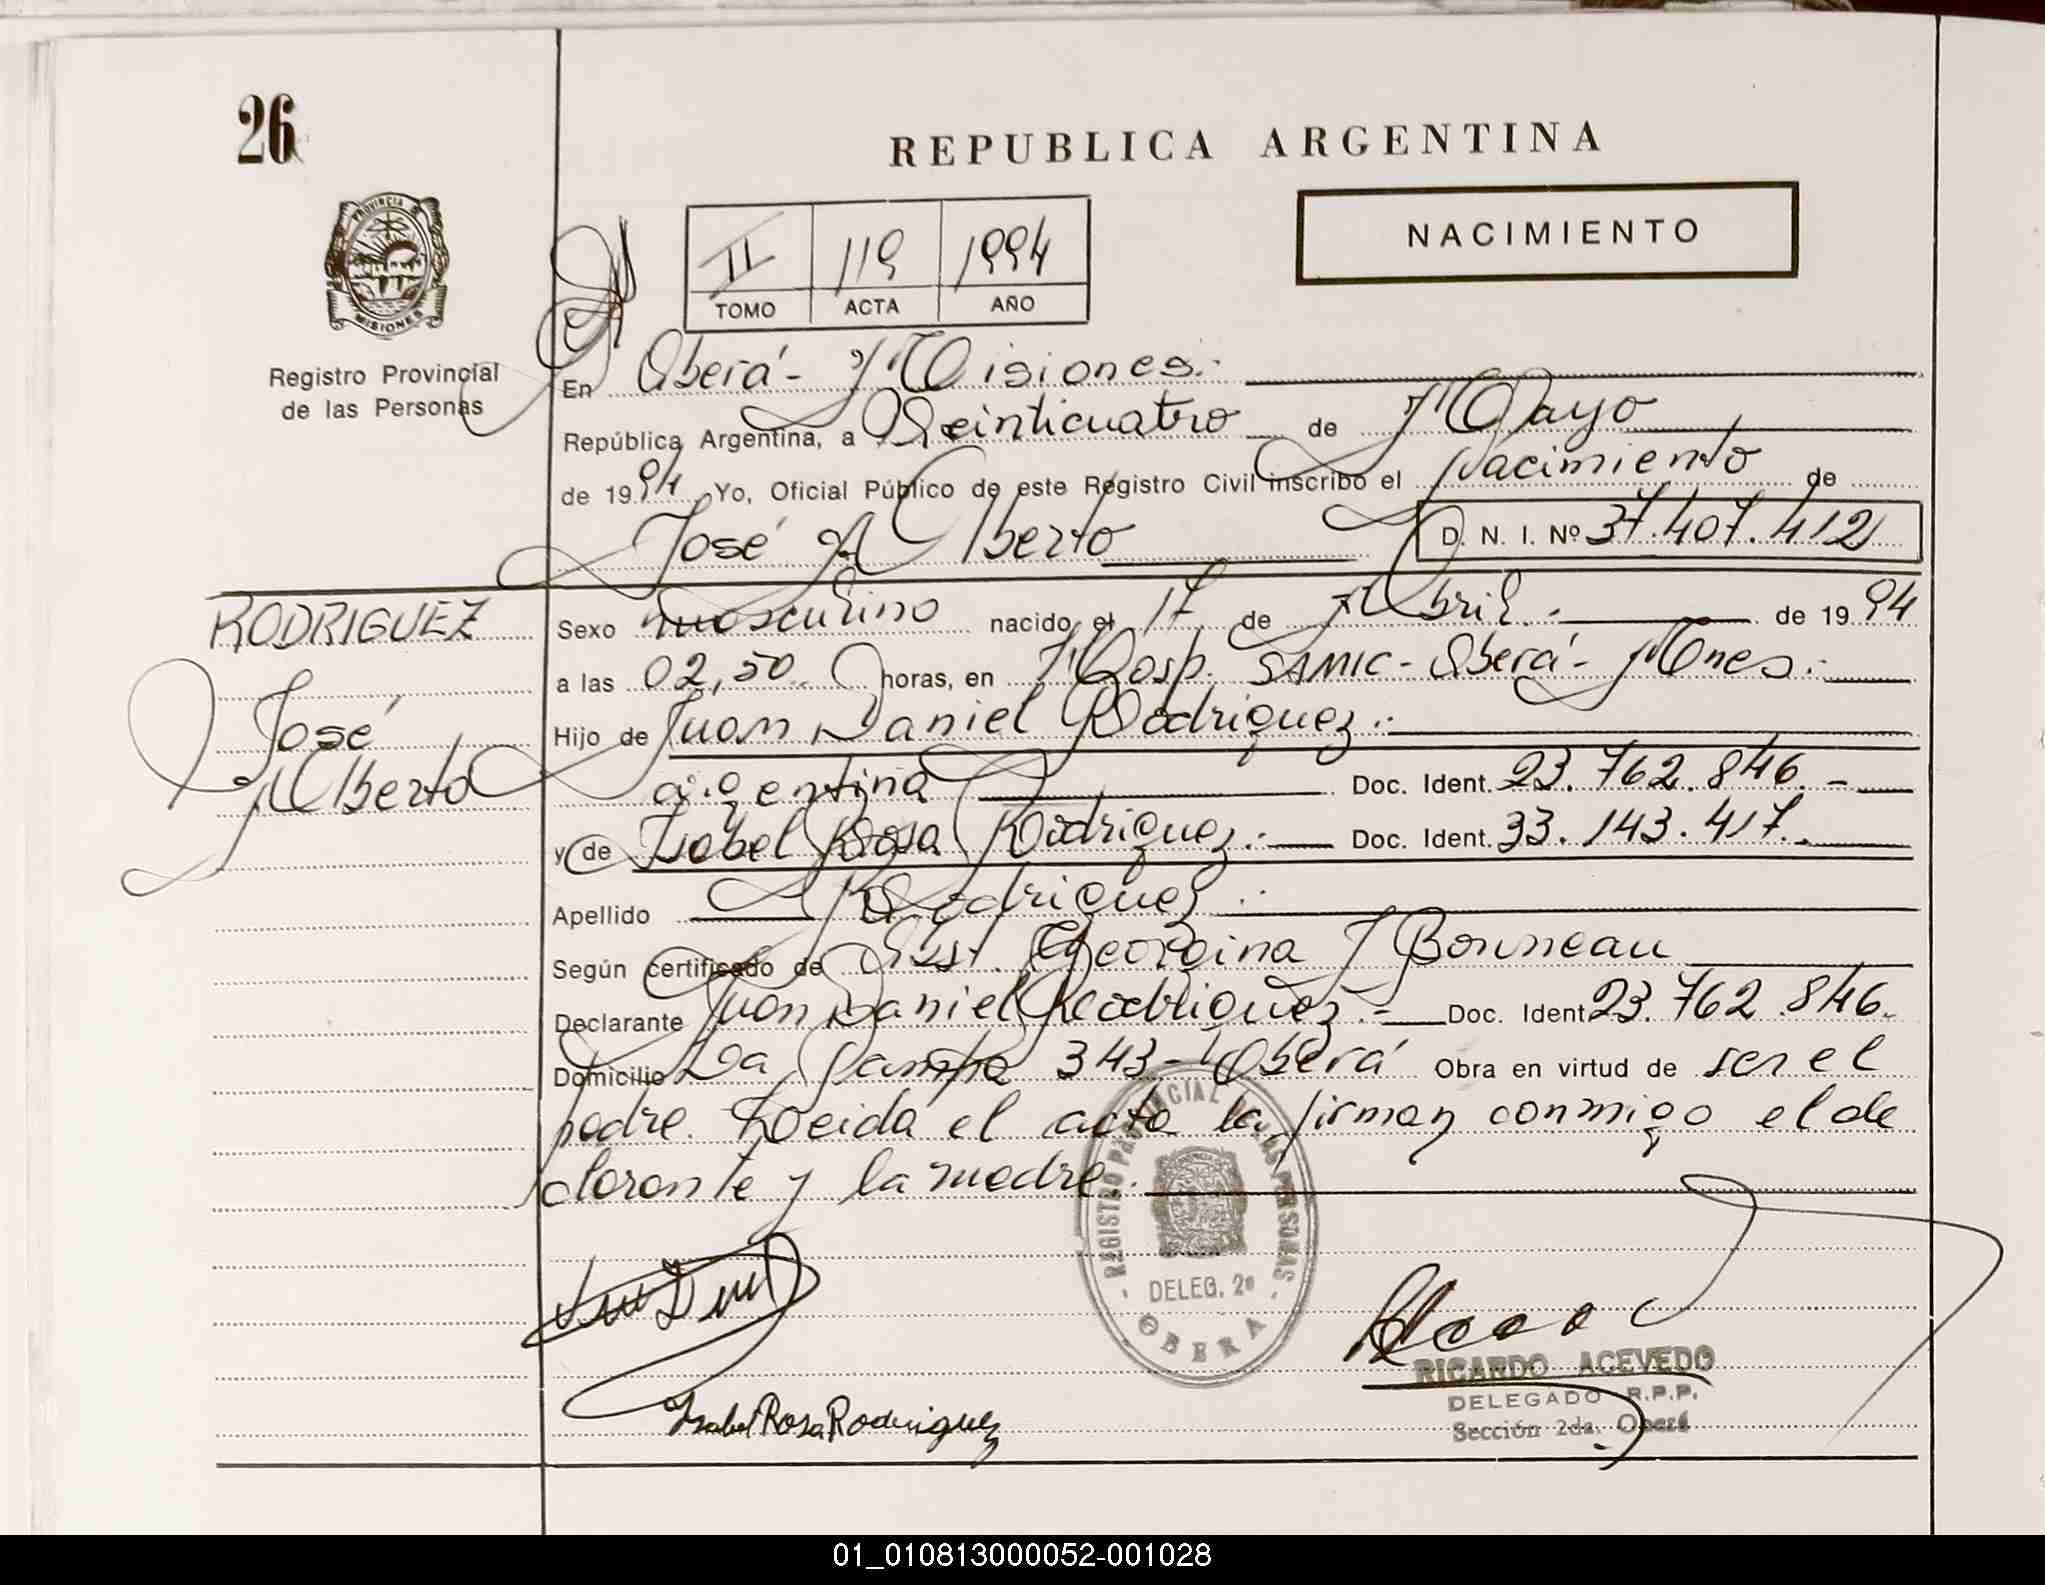 26
REPUBLICA ARGENTINA
PROVINCIA
MISIONES
Registro Provincial
de las Personas
II 119 1994
TOMO ACTA AÑO
NACIMIENTO
En Oberá - Misiones.-
República Argentina, a Veinticuatro de Mayo
de 1994 Yo, Oficial Público de este Registro Civil inscribo el Nacimiento de
José Alberto D. N. I. Nº 37.407.412
RODRIGUEZ
José
Alberto
Sexo masculino nacido el 17 de Abril.- de 1994
a las 02,50 horas, en Hosp. SAMIC - Oberá - Mnes.-
Hijo de Juan Daniel Rodriguez.-
argentina Doc. Ident. 23.762.846.-
y de Isabel Rosa Rodriguez.- Doc. Ident. 33.143.417.-
Apellido Rodriguez.-
Según certificado de Obst. Georgina J Bonneau
Declarante Juan Daniel Rodriguez.- Doc. Ident 23.762.846.-
Domicilio La Pampa 343 - Oberá Obra en virtud de ser el
padre. Leida el acta la firman conmigo el de
clarante y la madre.-
REGISTRO PROVINCIAL DE LAS PERSONAS
DELEG. 2ª
OBERA
Isabel Rosa Rodriguez
RICARDO ACEVEDO
DELEGADO R.P.P.
Sección 2da. Oberá
01_010813000052-001028